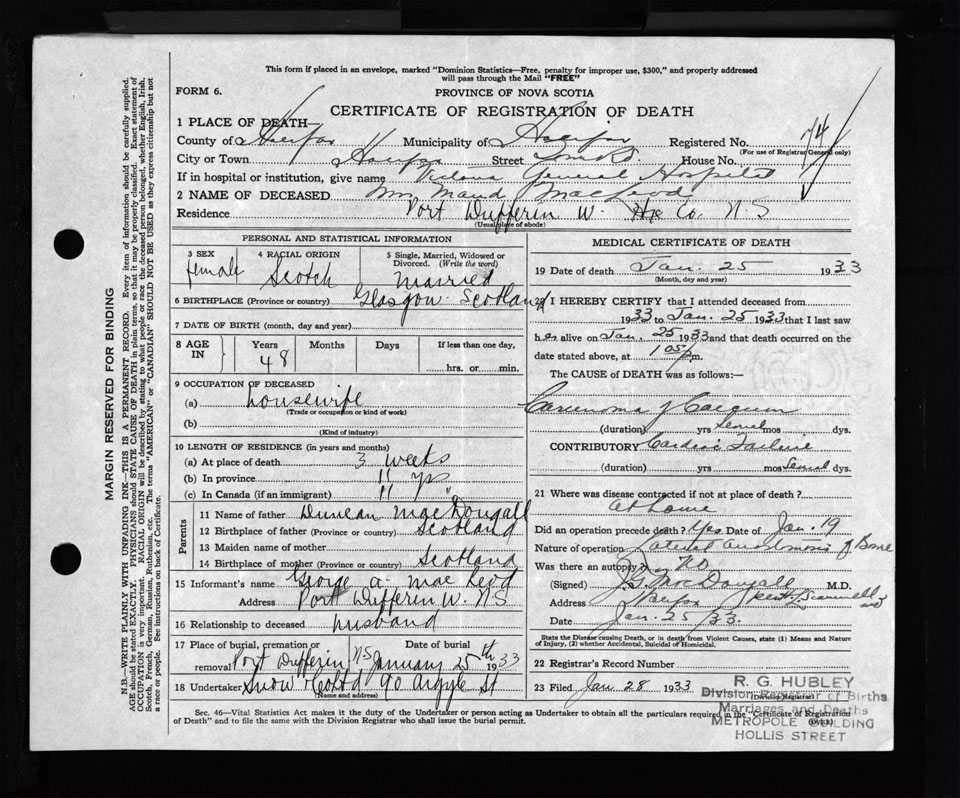 This form if placed in an envelope, marked "Dominion Statistics—Free, penalty for improper use, $300," and properly addressed
will pass through the Mail "FREE"
FORM 6.
PROVINCE OF NOVA SCOTIA
CERTIFICATE OF REGISTRATION OF DEATH
1 PLACE OF DEATH
County of Halifax Municipality of Halifax Registered No. 74
(For use of Registrar General only)
City or Town Halifax Street House No.
If in hospital or institution, give name Victoria General Hospital
2 NAME OF DECEASED Mrs Maud MacLeod
Residence Port Dufferin W. Hx Co. N.S
(Usual place of abode)
PERSONAL AND STATISTICAL INFORMATION
3 SEX female
4 RACIAL ORIGIN Scotch
5 Single, Married, Widowed or Divorced. (Write the word) married
6 BIRTHPLACE (Province or country) Glasgow Scotland
7 DATE OF BIRTH (month, day and year)
8 AGE IN Years Months Days If less than one day,
48 hrs. or min.
9 OCCUPATION OF DECEASED
(a) housewife
(Trade or occupation or kind of work)
(b)
(Kind of industry)
10 LENGTH OF RESIDENCE (in years and months)
(a) At place of death 3 weeks
(b) In province 11 yrs
(c) In Canada (if an immigrant) 11 "
Parents
11 Name of father Duncan MacDougall
12 Birthplace of father (Province or country) Scotland
13 Maiden name of mother
14 Birthplace of mother (Province or country) Scotland
15 Informant's name George A. MacLeod
Address Port Dufferin W. N.S
16 Relationship to deceased husband
17 Place of burial, cremation or removal Port Dufferin N S Date of burial January 25th 1933
18 Undertaker Snow & Co Ltd 90 Argyle St
(Name and address)
MEDICAL CERTIFICATE OF DEATH
19 Date of death Jan. 25 1933
(Month, day and year)
I HEREBY CERTIFY that I attended deceased from
1933 to Jan. 25 1933 that I last saw
h as alive on Jan. 25 1933 and that death occurred on the
date stated above, at 1 05 p m.
The CAUSE of DEATH was as follows:—
Carcinoma of Caecum
(duration) yrs several mos dys.
CONTRIBUTORY Cardiac Failure
(duration) yrs mos several dys.
21 Where was disease contracted if not at place of death?
at home
Did an operation precede death? Yes Date of Jan. 19
Nature of operation Lateral anastomosis of
Was there an autopsy? No
(Signed) J.G. MacDougall M.D.
Address Halifax
Date Jan. 25/33.
State the Disease causing Death, or in death from Violent Causes, state (1) Means and Nature
of Injury, (2) whether Accidental, Suicidal or Homicidal.
22 Registrar's Record Number
23 Filed Jan 28 1933
(Division Registrar)
R. G. HUBLEY
Division Registrar of Births
Marriages and Deaths
METROPOLE BUILDING
HOLLIS STREET
Sec. 46—Vital Statistics Act makes it the duty of the Undertaker or person acting as Undertaker to obtain all the particulars required in the "Certificate of Registration
of Death" and to file the same with the Division Registrar who shall issue the burial permit.
(OVER)
MARGIN RESERVED FOR BINDING
N.B.—WRITE PLAINLY WITH UNFADING INK—THIS IS A PERMANENT RECORD. Every item of information should be carefully supplied.
AGE should be stated EXACTLY. PHYSICIANS should STATE CAUSE OF DEATH in plain terms, so that it may be properly classified. Exact statement of
OCCUPATION is very important. RACIAL ORIGIN will be described by stating to what people or race the deceased person belonged, whether English, Irish,
Scotch, French, German, Russian, Ruthenian, etc. The terms "AMERICAN" or "CANADIAN" SHOULD NOT BE USED as they express citizenship but not
a race or people. See instructions on back of Certificate.